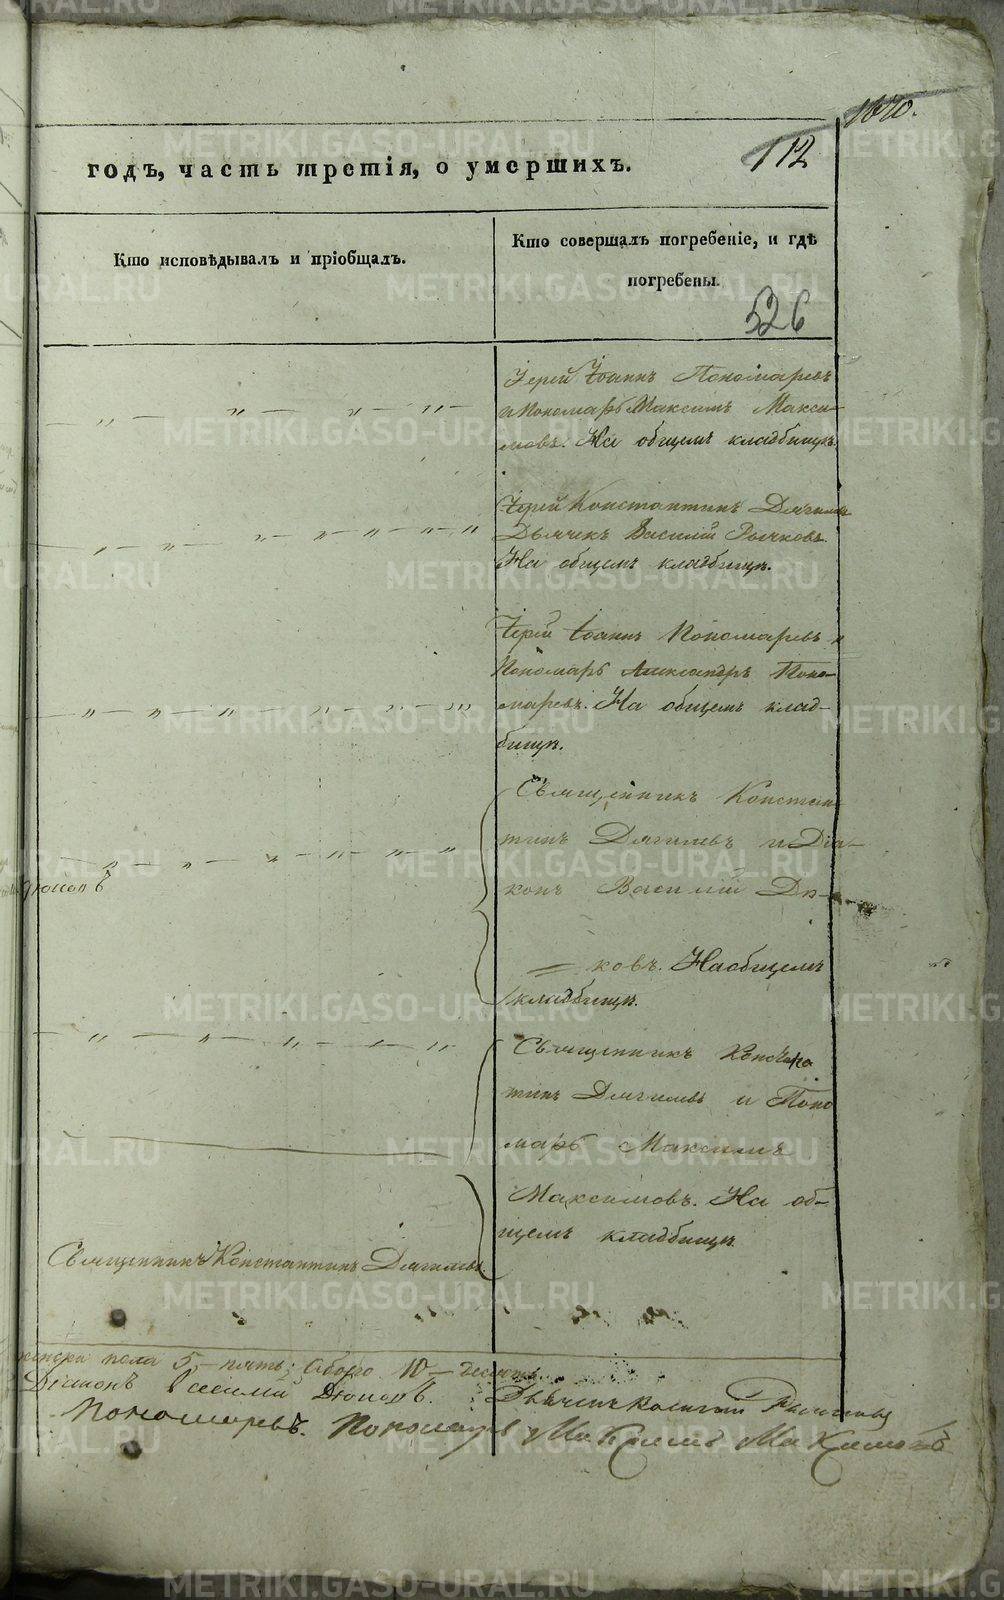 1670.
112
годъ, часть третія, о умершихъ.
Кто исповѣдывалъ и пріобщалъ.
Кто совершалъ погребеніе, и гдѣ
погребены.
526
Іерей Іоаннъ Пономаревъ
и Пономарь Максимъ Макси-
мовъ. На общемъ кладбищѣ.
Іерей Константинъ Дягилевъ
Дьячекъ Василій Рычковъ
На общемъ кладбищѣ.
Іерей Іоаннъ Пономаревъ и
Пономарь Александръ Поно-
маревъ. На общемъ клад-
бищѣ.
Священникъ Констан-
тинъ Дягилевъ и Діа-
конъ Василій Дю-
ковъ. На общемъ
кладбищѣ.
Священникъ Констан
тинъ Дягилевъ и Поно
марь Максимъ
Максимовъ. На об-
щемъ кладбищѣ.
Священникъ Константинъ Дягилевъ
пола 5, пять; Обоего 10 десять
Діаконъ Василій Дюковъ. Дьячекъ Рычковъ
Пономаревъ. Пономарь Максимъ Максимовъ
METRIKI.GASO-URAL.RU